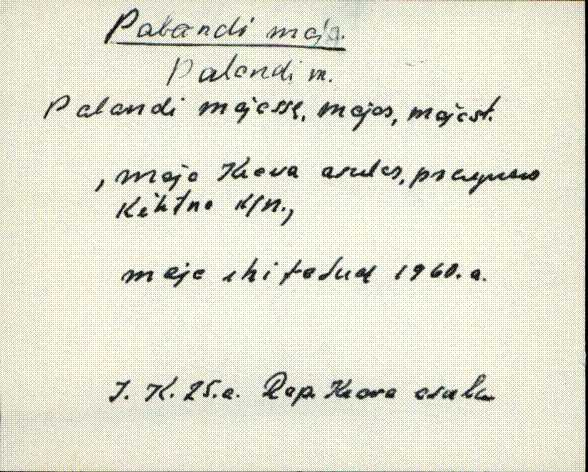 Palandi maja.
Palandi m.
Palandi majasse, majas, majast.
, maja Keava asulas, praegune
Kehtna k/n.,
maja ehitatud 1960. a.
J. K. 25. a. Rap. Keava asula